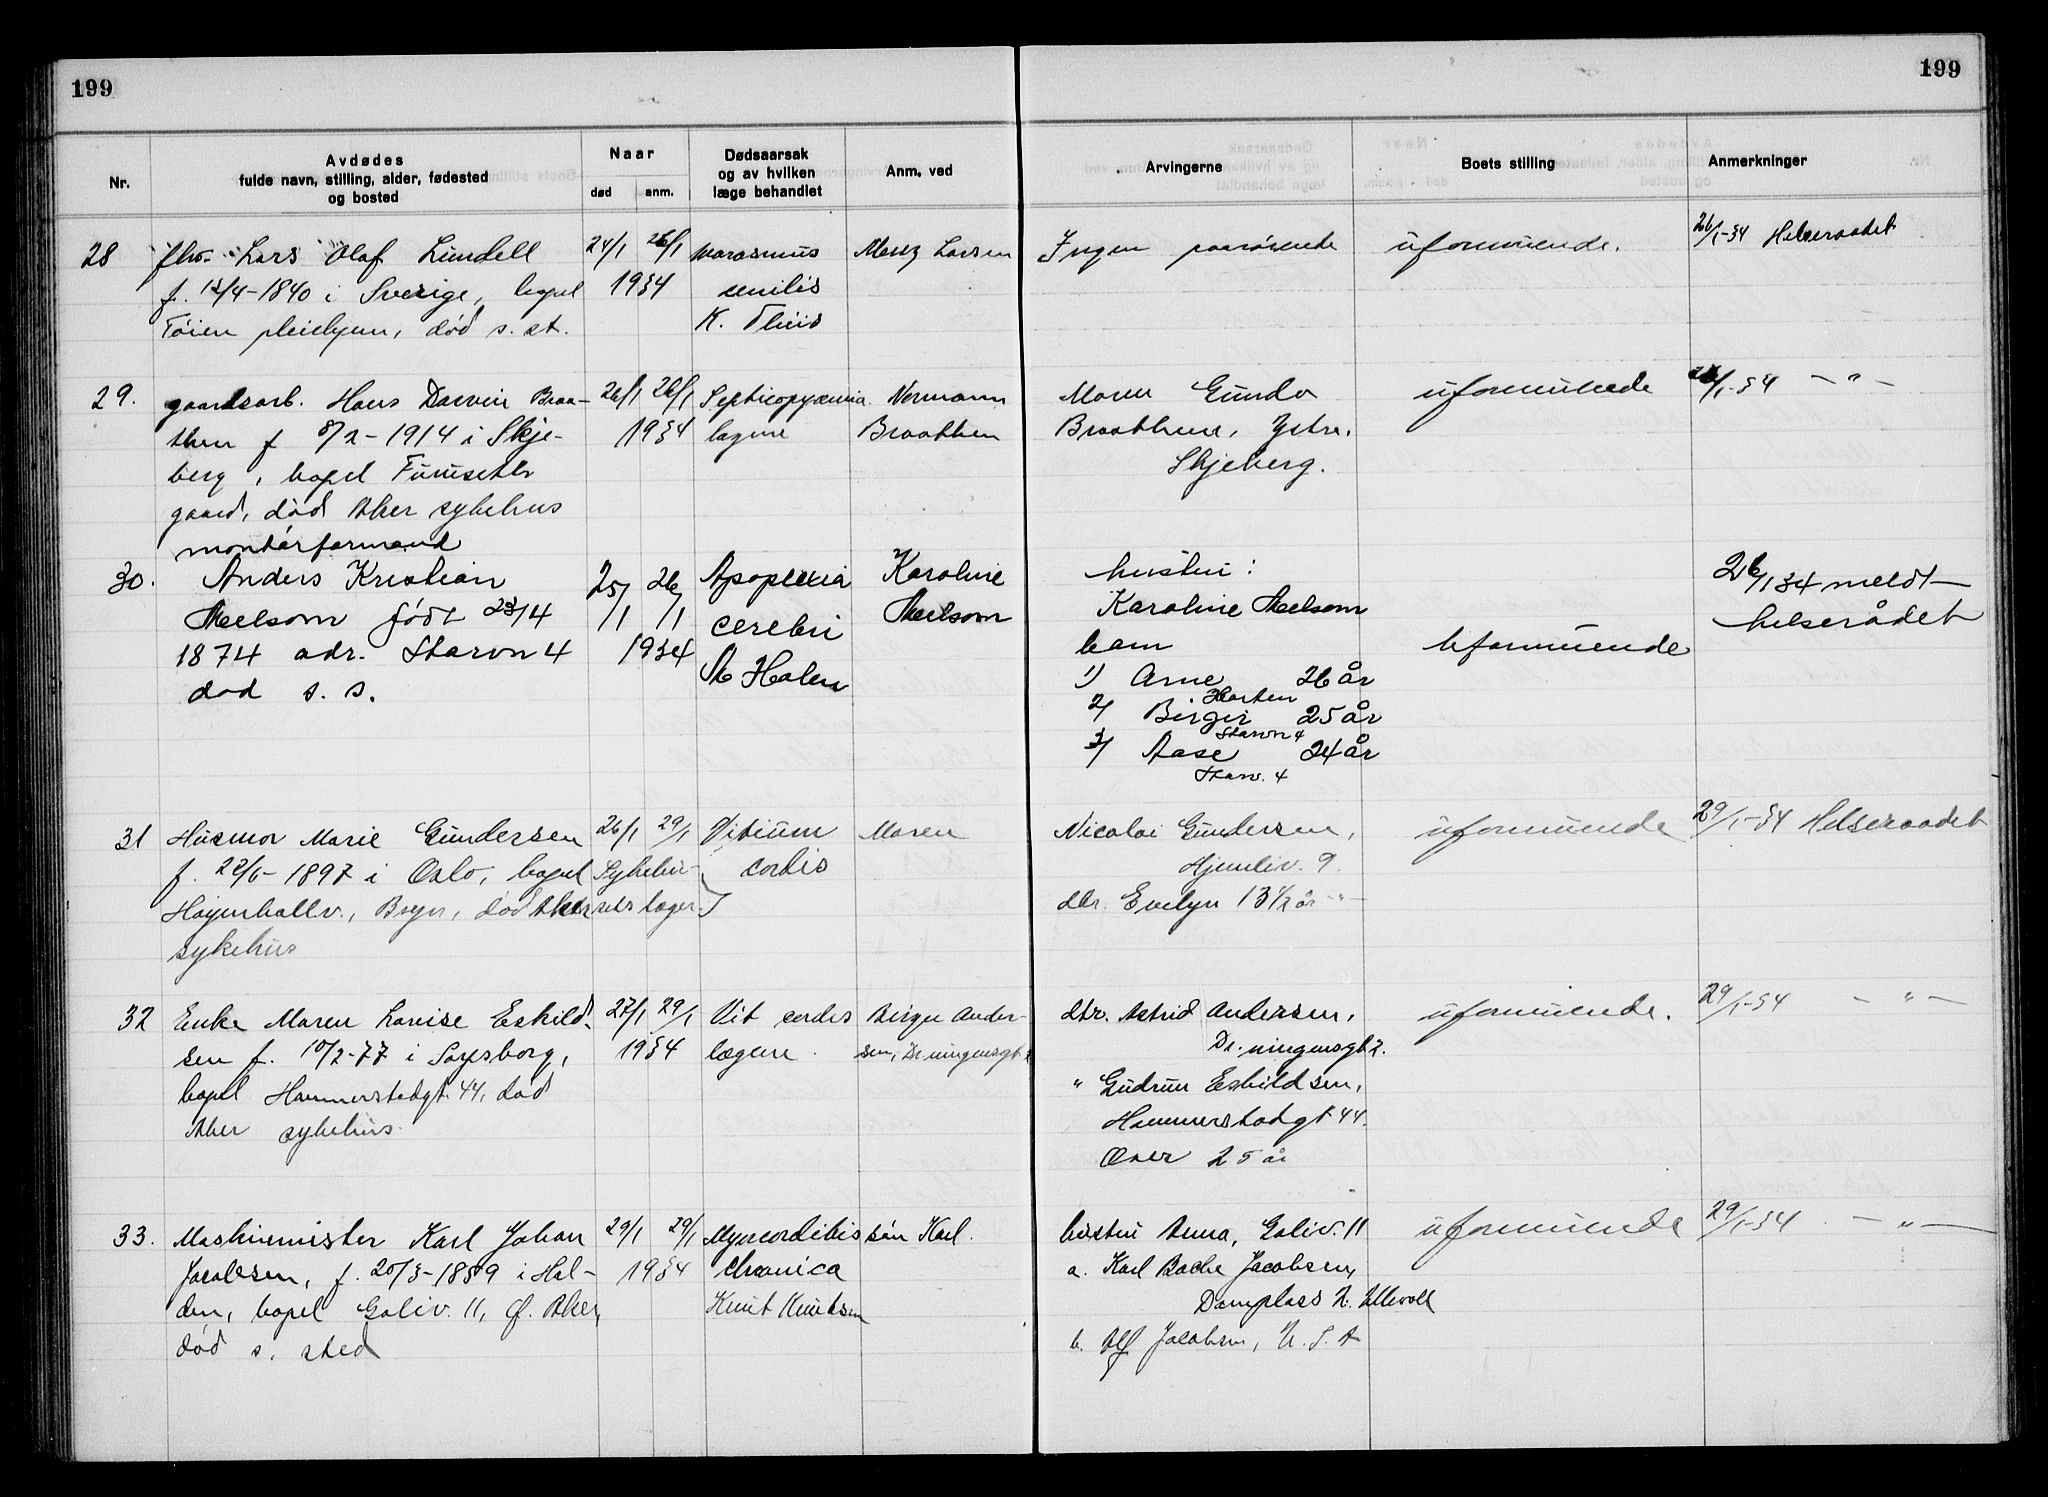 199
199
Nr.
Avdødes
fulde navn, stilling, alder, fødested
og bosted
Naar
død
anm.
Dødsaarsak
og av hvilken
læge behandlet
Anm. ved
Arvingerne
Boets stilling
Anmerkninger
28
fhv. Lars Olaf Lundell
f. 13/4-1840 i Sverige, bopel
Tøien pleiehjem, død s. st.
24/1 26/1
1934
marasmus
senilis
K. Theis
Larsen
Ingen paarørende
uformuende.
26/1-34 Helseraadet
29.
gaardsarb. Hans Darvin Braa-
then f 8/2-1914 i Skje-
berg, bopel Furuseth
gaard, død Aker sykehus
26/1 26/1
1934
Septicopyæmia
lægene
Normann
Braathen
Moren Gunda
Braathene, Ystre.
Skjeberg.
uformuende
26/1-34 — " —
30.
montørformand
Anders Kristian
Melsom født 23/4
1874 adr. Starvn 4
død s. s.
25/1 26/1
1934
Apoplexia
cerebri
Holen
Karoline
Melsom
hustru:
Karoline Melsom
barn
1) Arne 26 år
Horten
2) Birger 25 år
Starvn 4
3) Aase 24 år
Starv. 4
Uformuende
26/1 34 meldt
helserådet
31
Husmor Marie Gundersen
f. 22/6-1897 i Oslo, bopel
Høyenhallv., Bryn, død Aker
sykehus
26/1 29/1
Sykehu-
sets læger
Vitium
cordis
Maren
Nicolai Gundersen,
Hjemliv. 9.
dtr. Evelyn 13 1/2 år — " —
uformuende
29/1-34 Helseraadet
32
Enke Maren Lovise Eskild-
sen f. 10/2-77 i Sarpsborg,
bopel Hammerstadgt. 44, død
Aker sykehus.
27/1 29/1
1934
Vit cordis
lægene.
Birger Ander-
sen, Dr.ningensgt 2
dtr. Astrid Andersen,
Dr.ningensgt 2.
" Gudrun Eskildsen,
Hammerstadgt 44.
Over 25 år
uformuende.
29/1-34 — " —
33.
Maskinmister Karl Johan
Jacobsen, f. 20/3-1859 i Hal-
den, bopel Goliv. 11, Ø. Aker,
død s. sted
29/1 29/1
1934
Myocorditis
chronica
Knut Knutsen
søn Karl.
hustru Anna, Goliv. 11
a. Karl Bache Jacobsen,
Damplass Ullevoll
b. Alf Jacobsen, U. S. A
uformuende
29/1-34 — " —